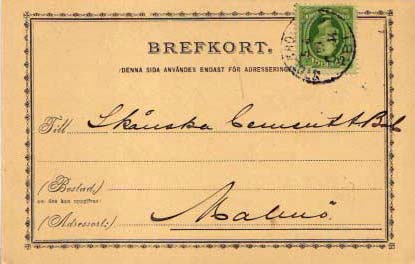 BREFKORT.
(DENNA SIDA ANVÄNDES ENDAST FÖR ADRESSERING
Till Skånska Cement A Bol
(Bostad,)
om den kan uppgifvas
(Adressort:) Malmö.